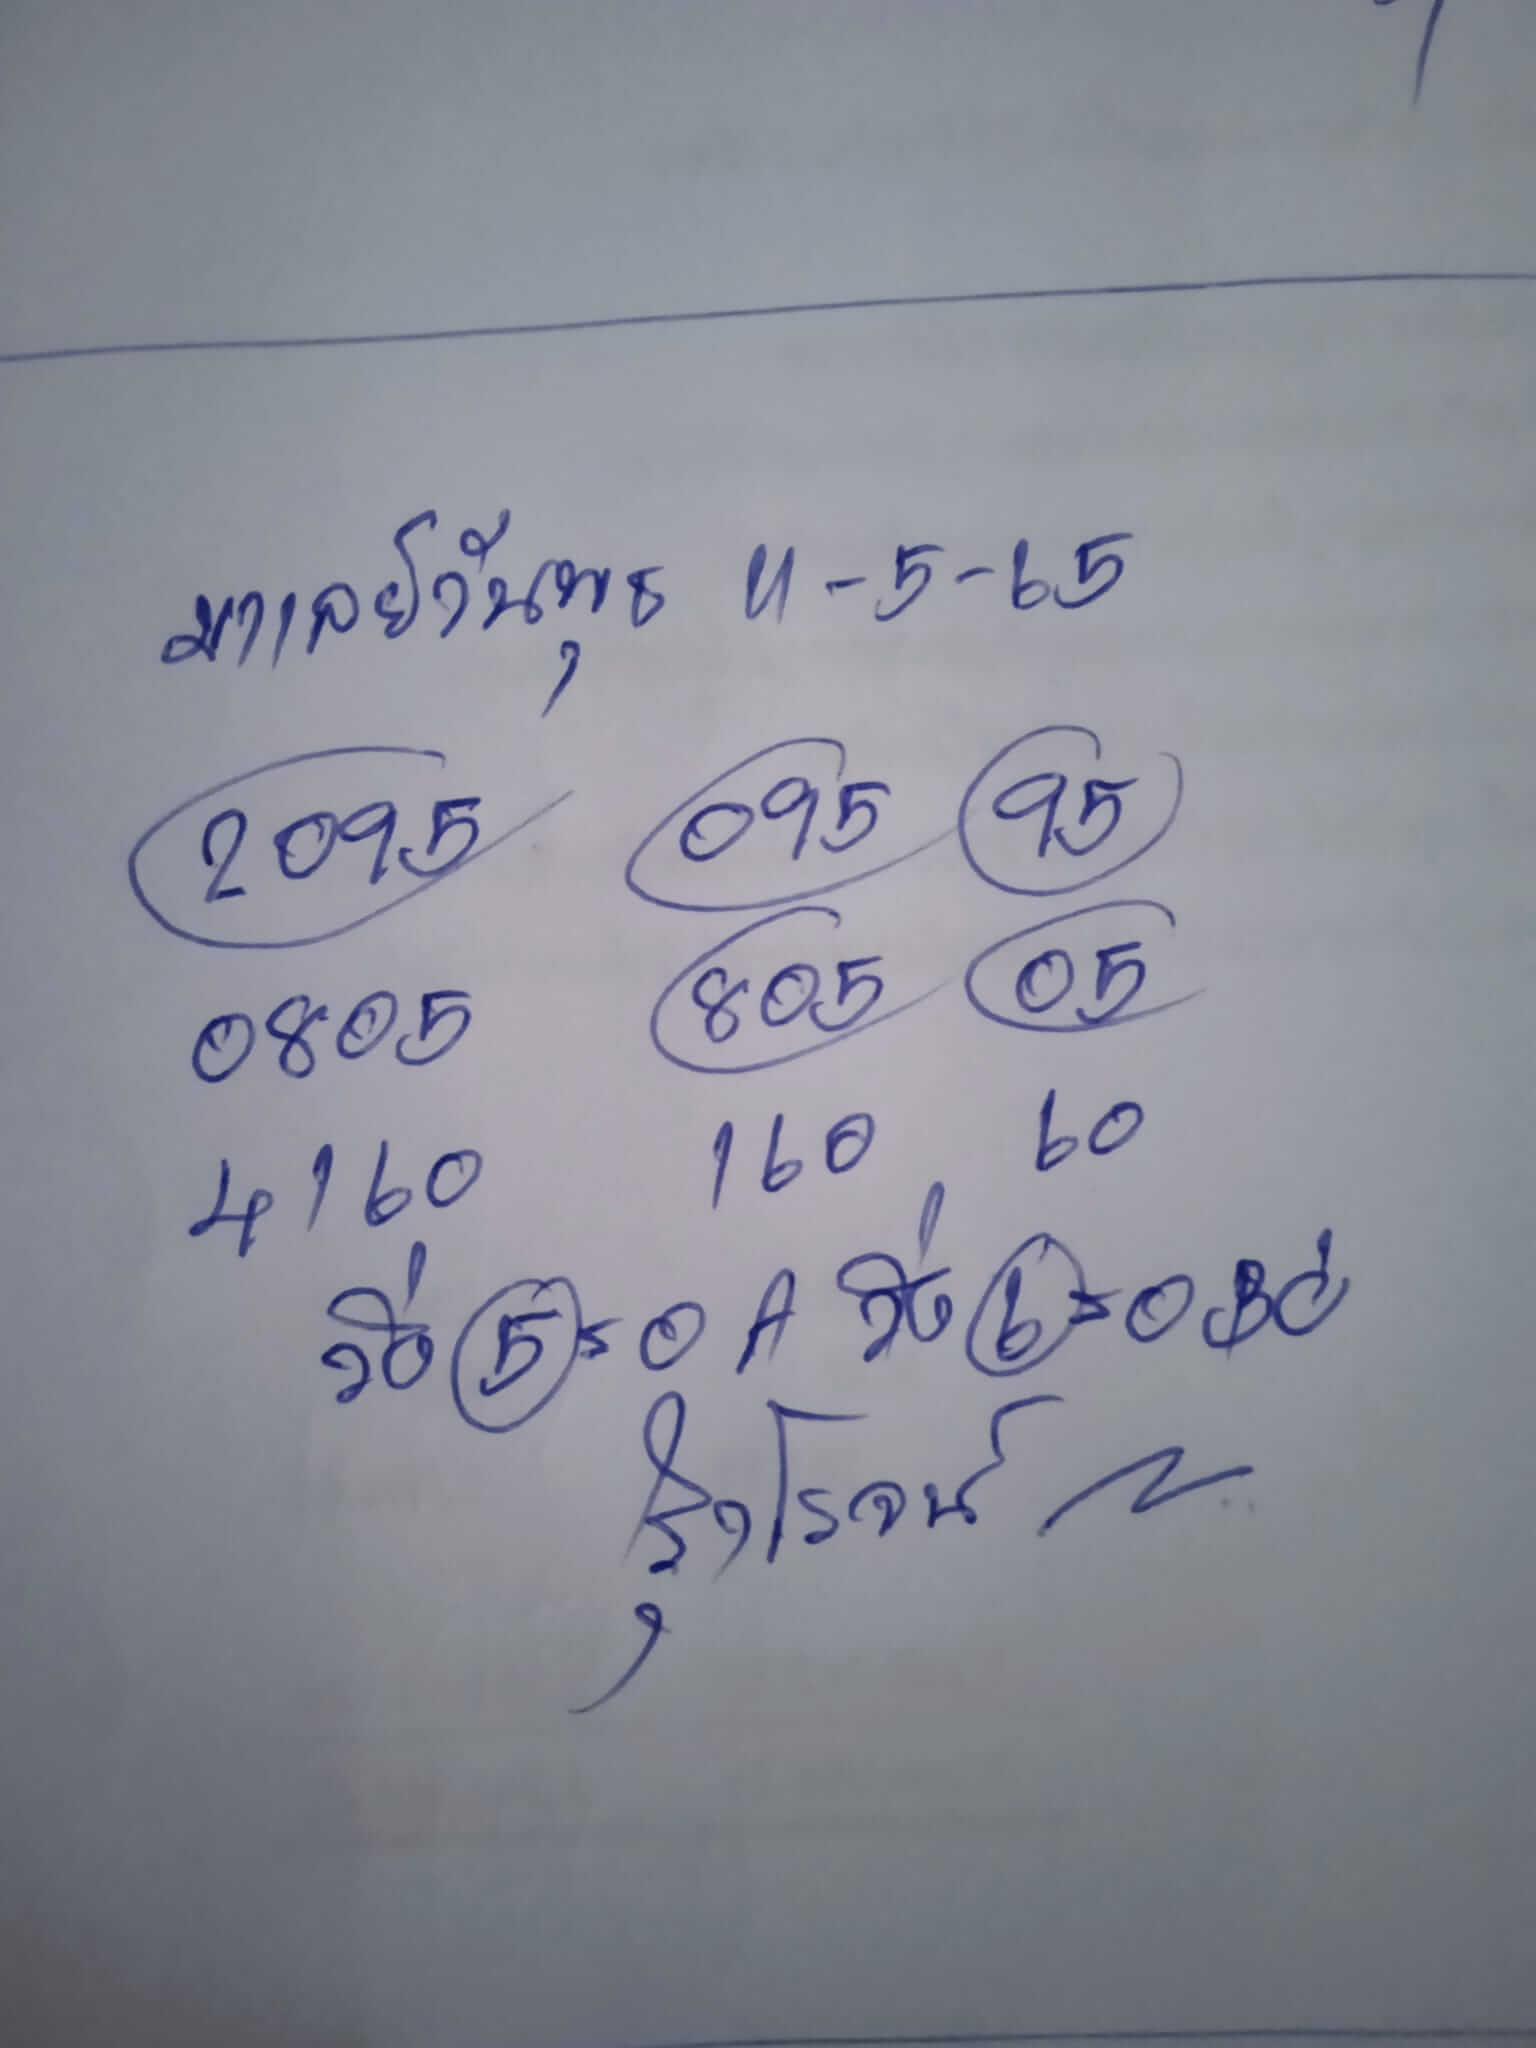 มาเลย์วันพุธ 11-5-65
2095 095 95
0805 805 05
4160 160 60
วิ่ง 5 = 0 A วิ่ง 6 = 0 BC
รุ่งโรจน์